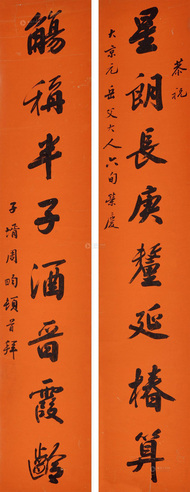 恭祝
大京元岳父大人六旬荣庆
星朗長庚釐延椿算
觴稱半子酒晉霞齡
子婿周昀頓首拜